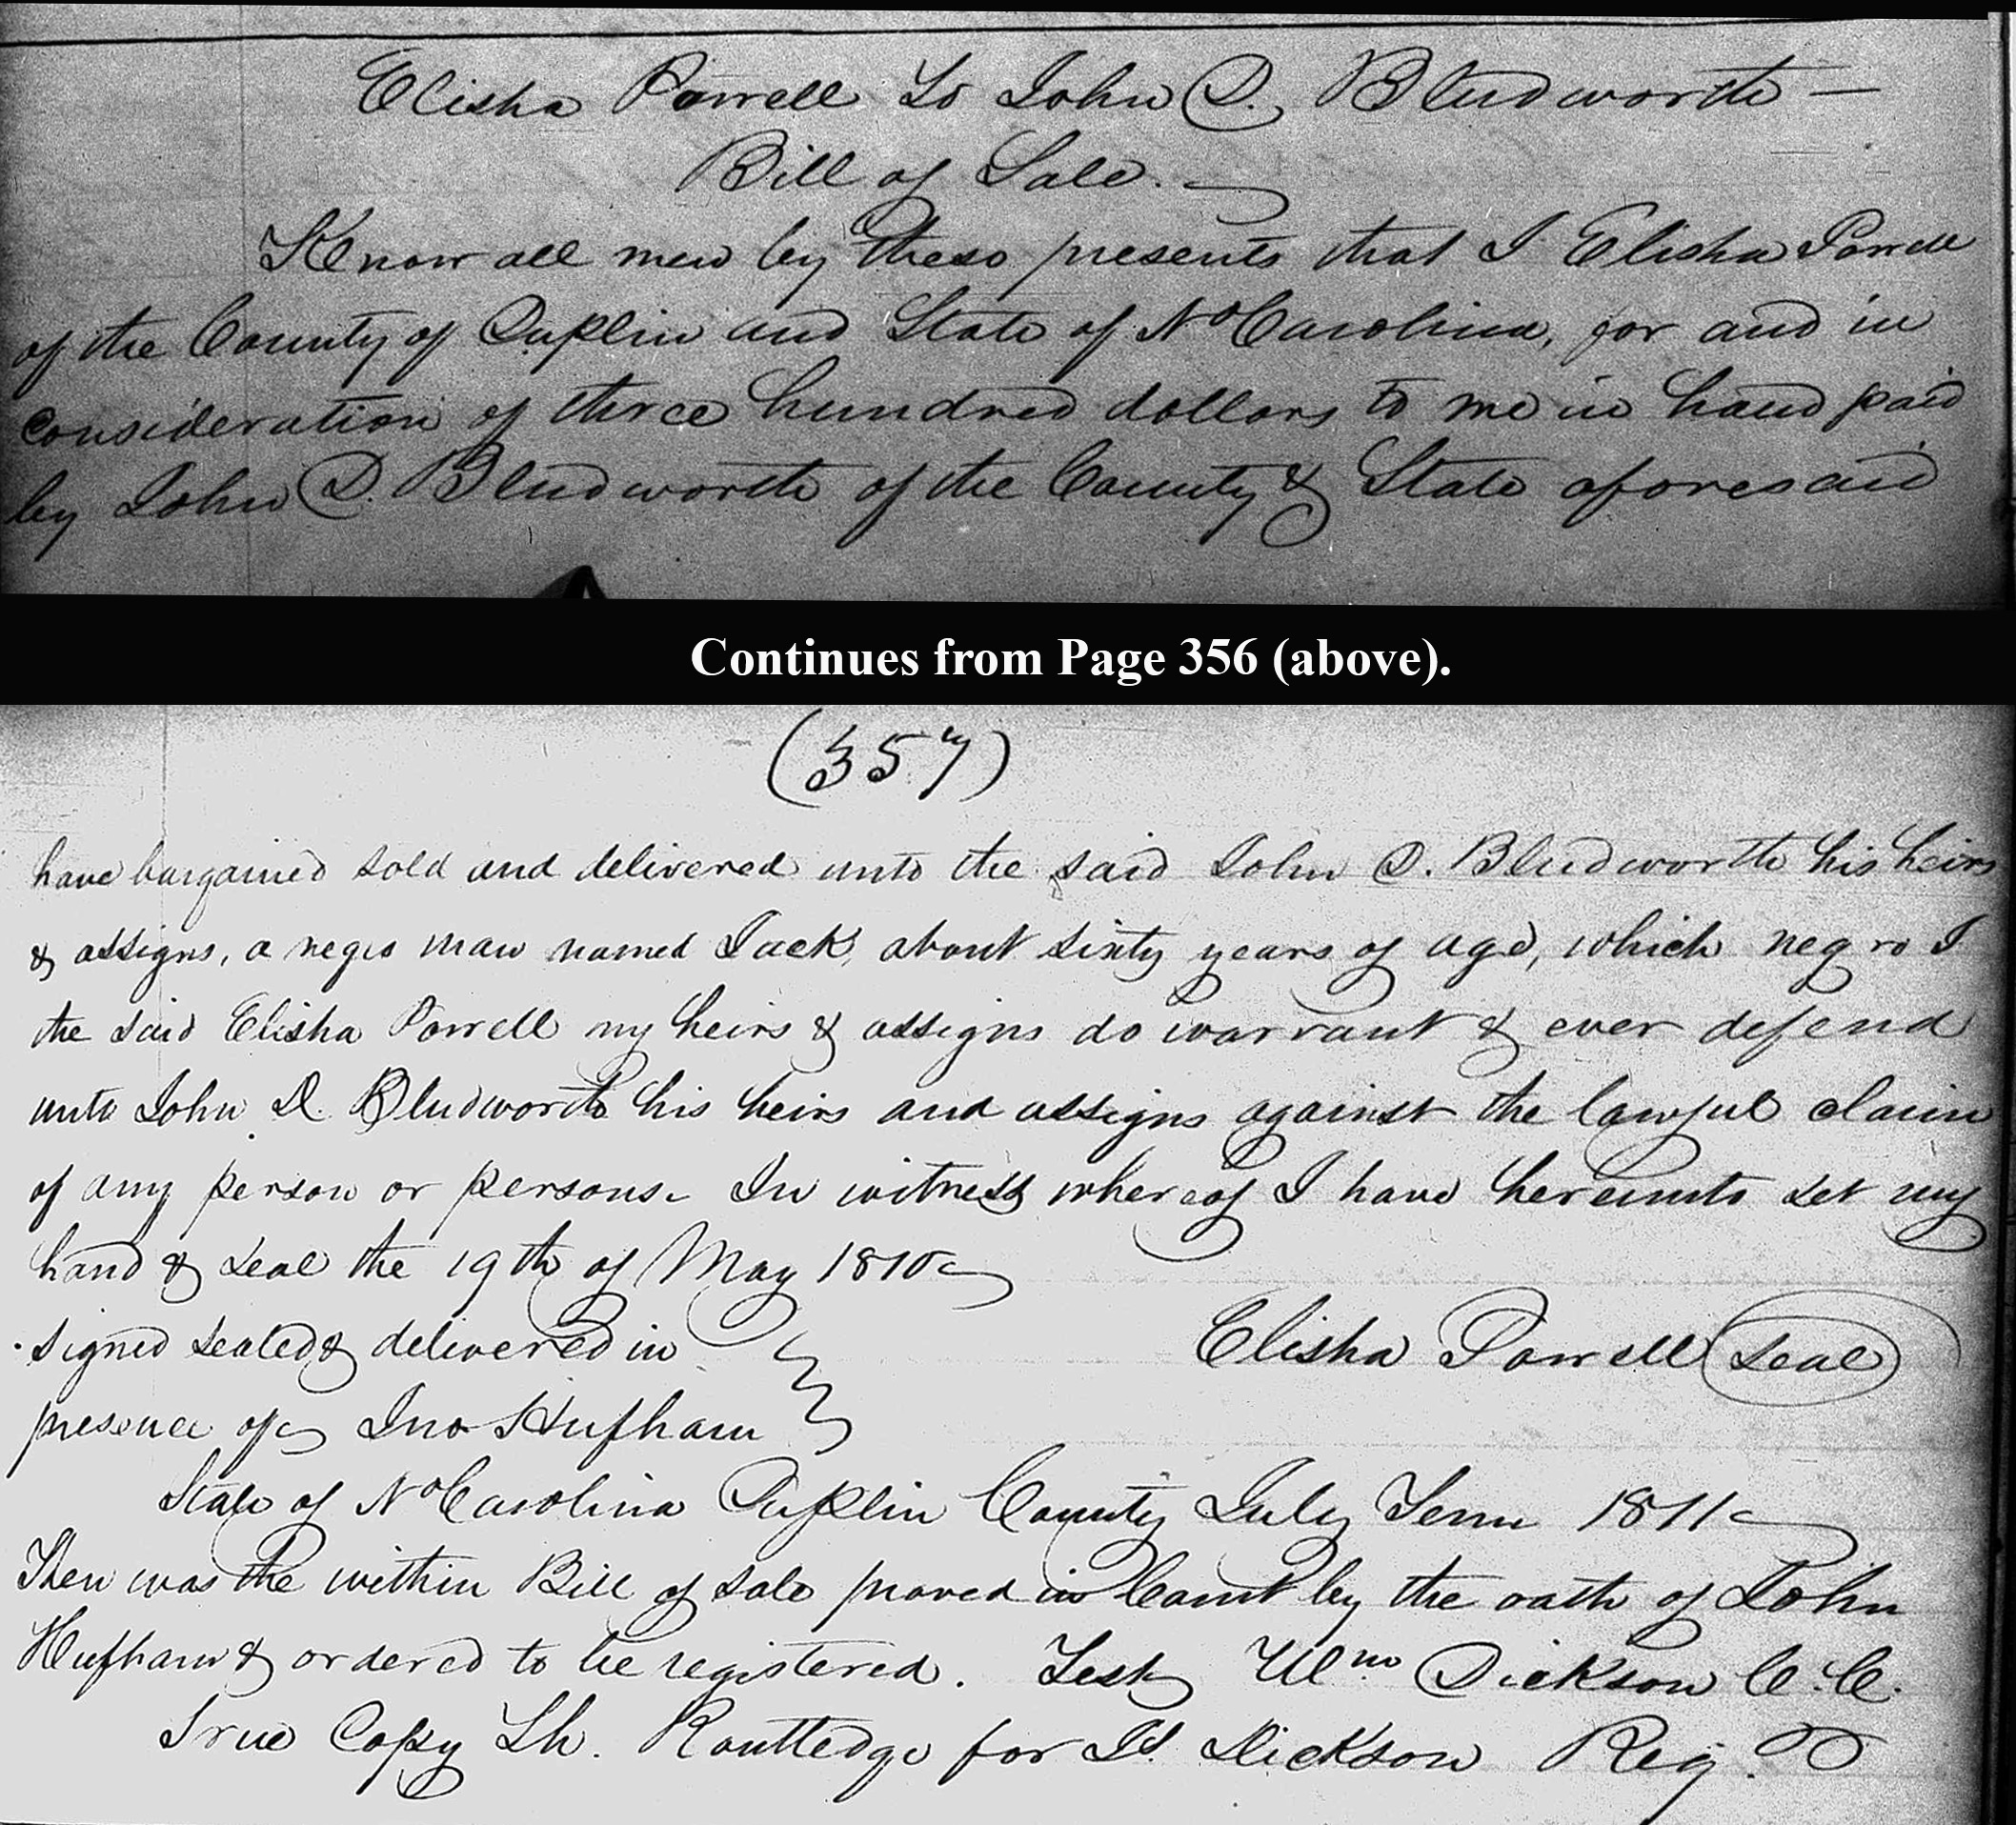 Elisha Powell to John D. Bludworth —
Bill of Sale.
Know all men by these presents that I Elisha Powell
of the County of Duplin and State of No Carolina, for and in
consideration of three hundred dollars to me in hand paid
by John D. Bludworth of the County & State aforesaid
Continues from Page 356 (above).
(357)
have bargained sold and delivered unto the said John D. Bludworth his heirs
& assigns, a negro man named Jack, about sixty years of age, which negro I
the said Elisha Powell my heirs & assigns do warrant & ever defend
unto John D. Bludworth his heirs and assigns against the lawful claim
of any person or persons. In witness whereof I have hereunto set my
hand & seal the 19th of May 1810
signed sealed & delivered in
Elisha Powell Seal
presence of Jno Hufham
State of No Carolina Duplin County July Term 1811
Then was the within Bill of sale proved in Court by the oath of John
Hufham & ordered to be registered. Test Wm Dickson C. C.
True Copy Th. Routledge for Dickson Reg.